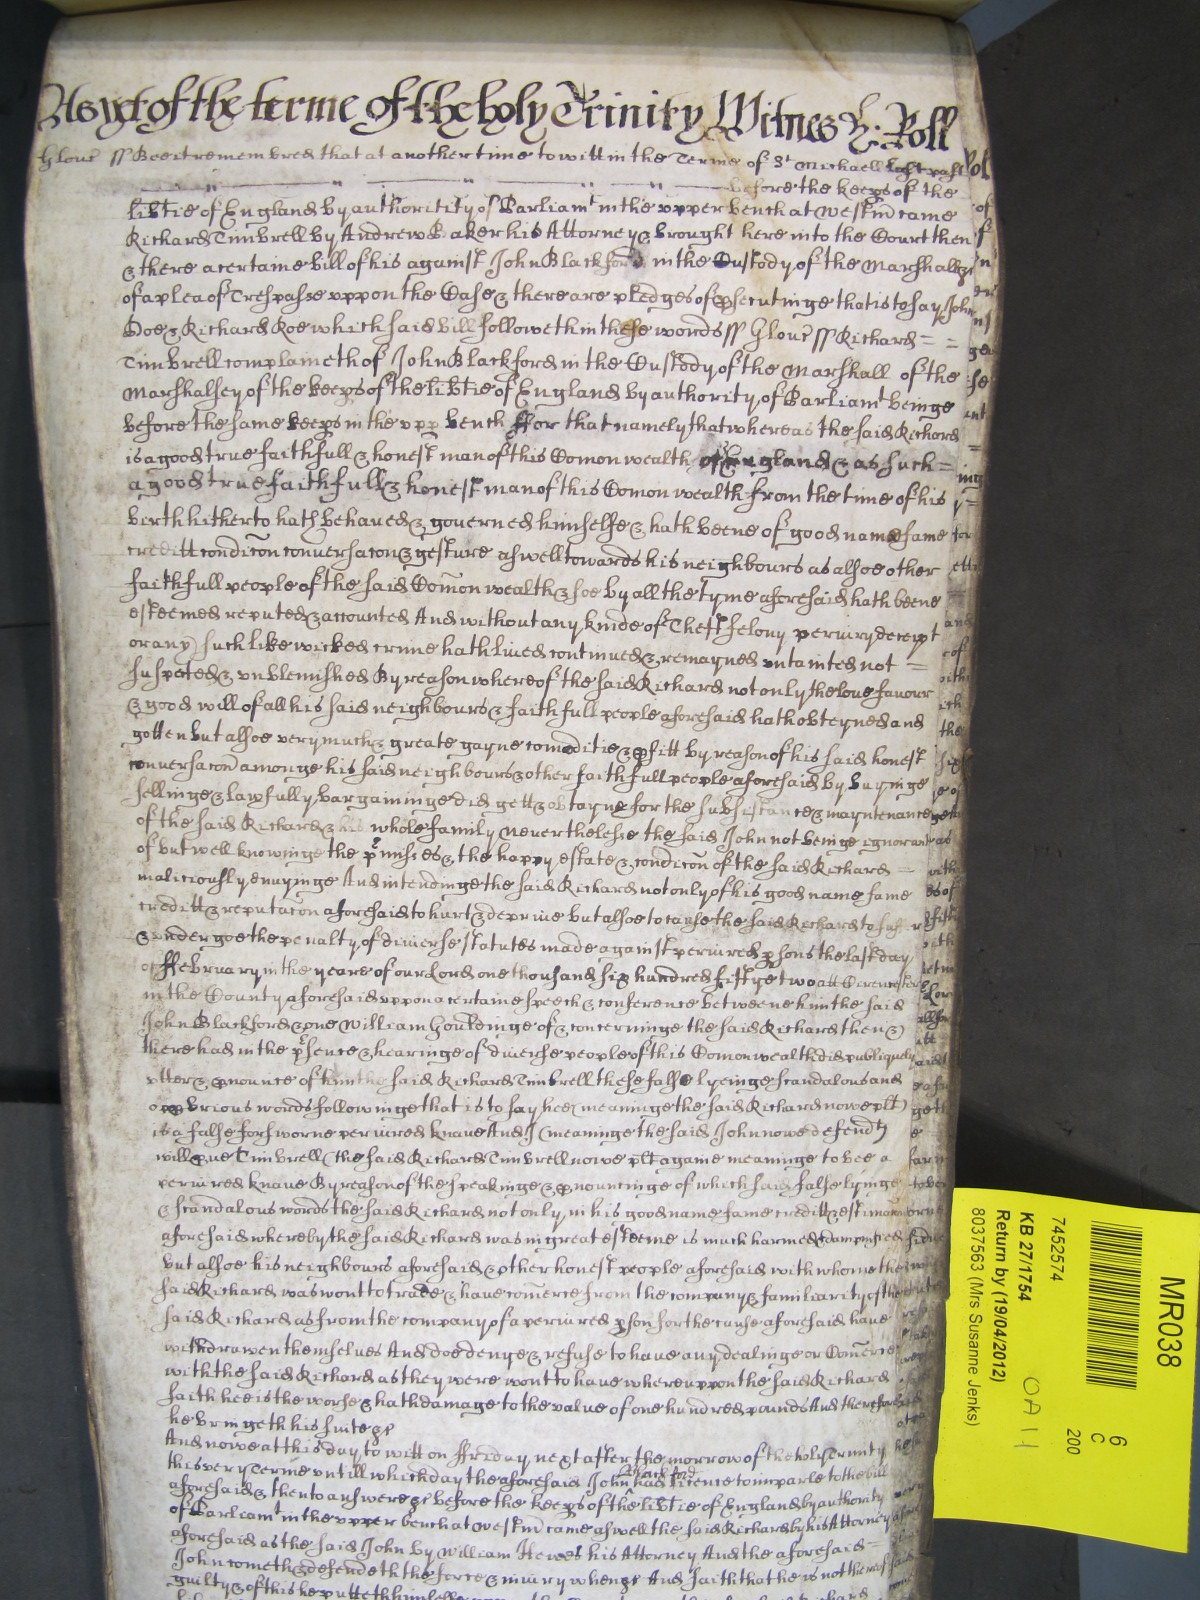 As yet of the terme of the holy Trinity Witnes H: Roll
Glouc ss Bee it remembred that at another time to witt in the Terme of St Michaell last past
before the keeps of the
libtie of England by authoritity of Parliamt in the upper bench at Westm came
Richard Timbrell by Andrew Baker his Attorney & brought here into the Court then
& there a certaine bill of his against John Blackford in the Custody of the Marshall &c
of a plea of Trespasse uppon the Case & there are pledges of psecutinge that is to say John
Doe & Richard Roe which said bill followeth in these words ss Glouc ss Richard = =
Timbrell complaineth of John Blackford in the Custody of the Marshall of the
Marshalsey of the keeps of the libtie of England by authority of Parliamt beinge
before the same keeps in the upp bench ffor that namely that whereas the said Richard
is a good true faithfull & honest man of this Comon wealth of England & as such =
a good true faithfull & honest man of this Comon wealth from the time of his
birth hitherto hath behaved & governed himselfe & hath beene of good name fame
creditt condicon conversacon & gesture aswell towards his neighbours as alsoe other
faithfull people of the said Comon wealth & soe by all the tyme aforesaid hath beene
esteemed reputed & accounted And without any kinde of Theft felony periury deceipt
or any such like wicked crime hath lived continued & remayned untainted not =
suspected & unblemished By reason whereof the said Richard not only the love favour
& good will of all his said neighbours & faithfull people aforesaid hath obteyned and
gotten but alsoe very much & greate gayne comoditie & pfitt by reason of his said honest
conversacon amonge his said neighbours & other faithfull people aforesaid by buyinge
sellinge & lawfully bargaininge did gett & obtayne for the subsistance & mayntenance
of the said Richard & his whole family nevertheless the said John not beinge ignorant
of but well knowinge the pmisses & the happy estate & condicon of the said Richard =
maliciously envyinge And intendinge the said Richard not only of his good name fame
creditt & reputacon aforesaid to hurt & deprive but alsoe to cause the said Richard to
& undergoe the penalty of diverse statutes made against periured psons the last day
of ffebruary in the yeare of our Lord one thousand six hundred fiftye two att Cirencester
in the County aforesaid uppon a certaine speech & conference betweene him the said
John Blackford & one William Houldinge of & concerninge the said Richard then &
there had in the psence & hearinge of diverse people of this Comonwealth did publiquely
utter & pnounce of him the said Richard Timbrell these false lyeinge scandalous and
opprbrious words followinge that is to say hee (meaninge the said Richard nowe plt)
is a false forsworne periured knave And I (meaninge the said John nowe defendt)
will pve Timbrell (the said Richard Timbrell nowe plt againe meaninge to bee a
periured knave By reason of the speakinge & pnouncinge of which said false lyinge
& scandalous words the said Richard not only in his good name fame creditt & estimacon
aforesaid whereby the said Richard was in great esteeme is much harmed & dampnifyed
but alsoe his neighbours aforesaid & other honest people aforesaid with whome the
said Richard was wont to trade & have comerce from the company & familiarity of the
said Richard as from the company of a periured pson for the cause aforesaid have
withdrawen themselves And doe denye & refuse to have any dealinge or Comerce
with the said Richard as they were wont to have whereuppon the said Richard
saith hee is the worse & hath damage to the value of one hundred pounds And therefore
he bringeth his suite &c
And nowe at this day to witt on ffriday next after the morrow of the holy Trinity
this very Terme untill which day the aforesaid John Blackford had licence to imparle to the bill
aforesaid & then to answere &c before the keeps of the libtie of England by authority
of Parliamt in the upper bench at Westm came aswell the said Richard by his Attorney
aforesaid as the said John by William Hewes his Attorney And the aforesaid =
John cometh & defendeth the force & iniury when &c And saith that he is not thereof
guilty & of this he putteth himselfe
MR038
6
C
200
7452574
KB 27/1754
Return by (19/04/2012)
8037563 (Mrs Susanne Jenks)